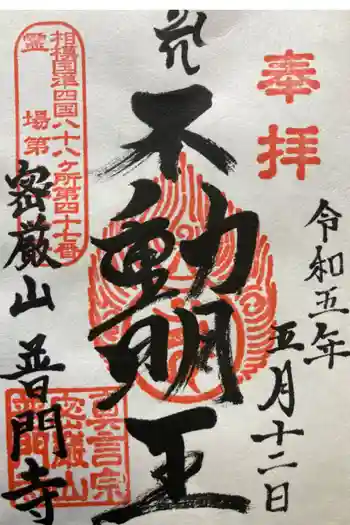 奉拝
令和五年
五月十二日
不動明王
相模国準四国八十八ヶ所第四十七番
霊場第
密厳山
普門寺
真言宗
密厳山
普門寺